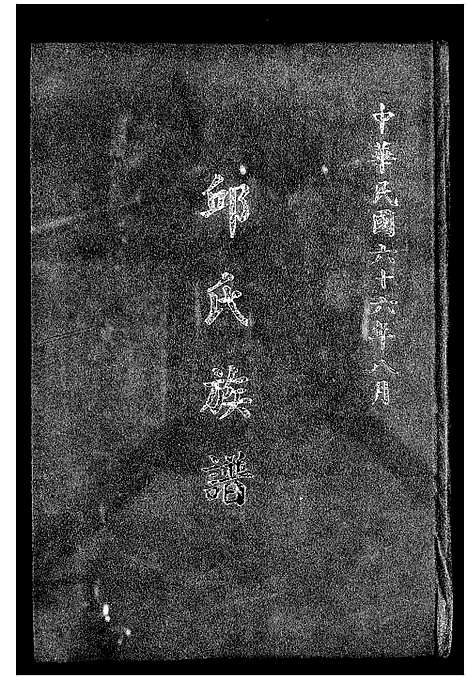 中華民國六十六年八月
邱氏族譜